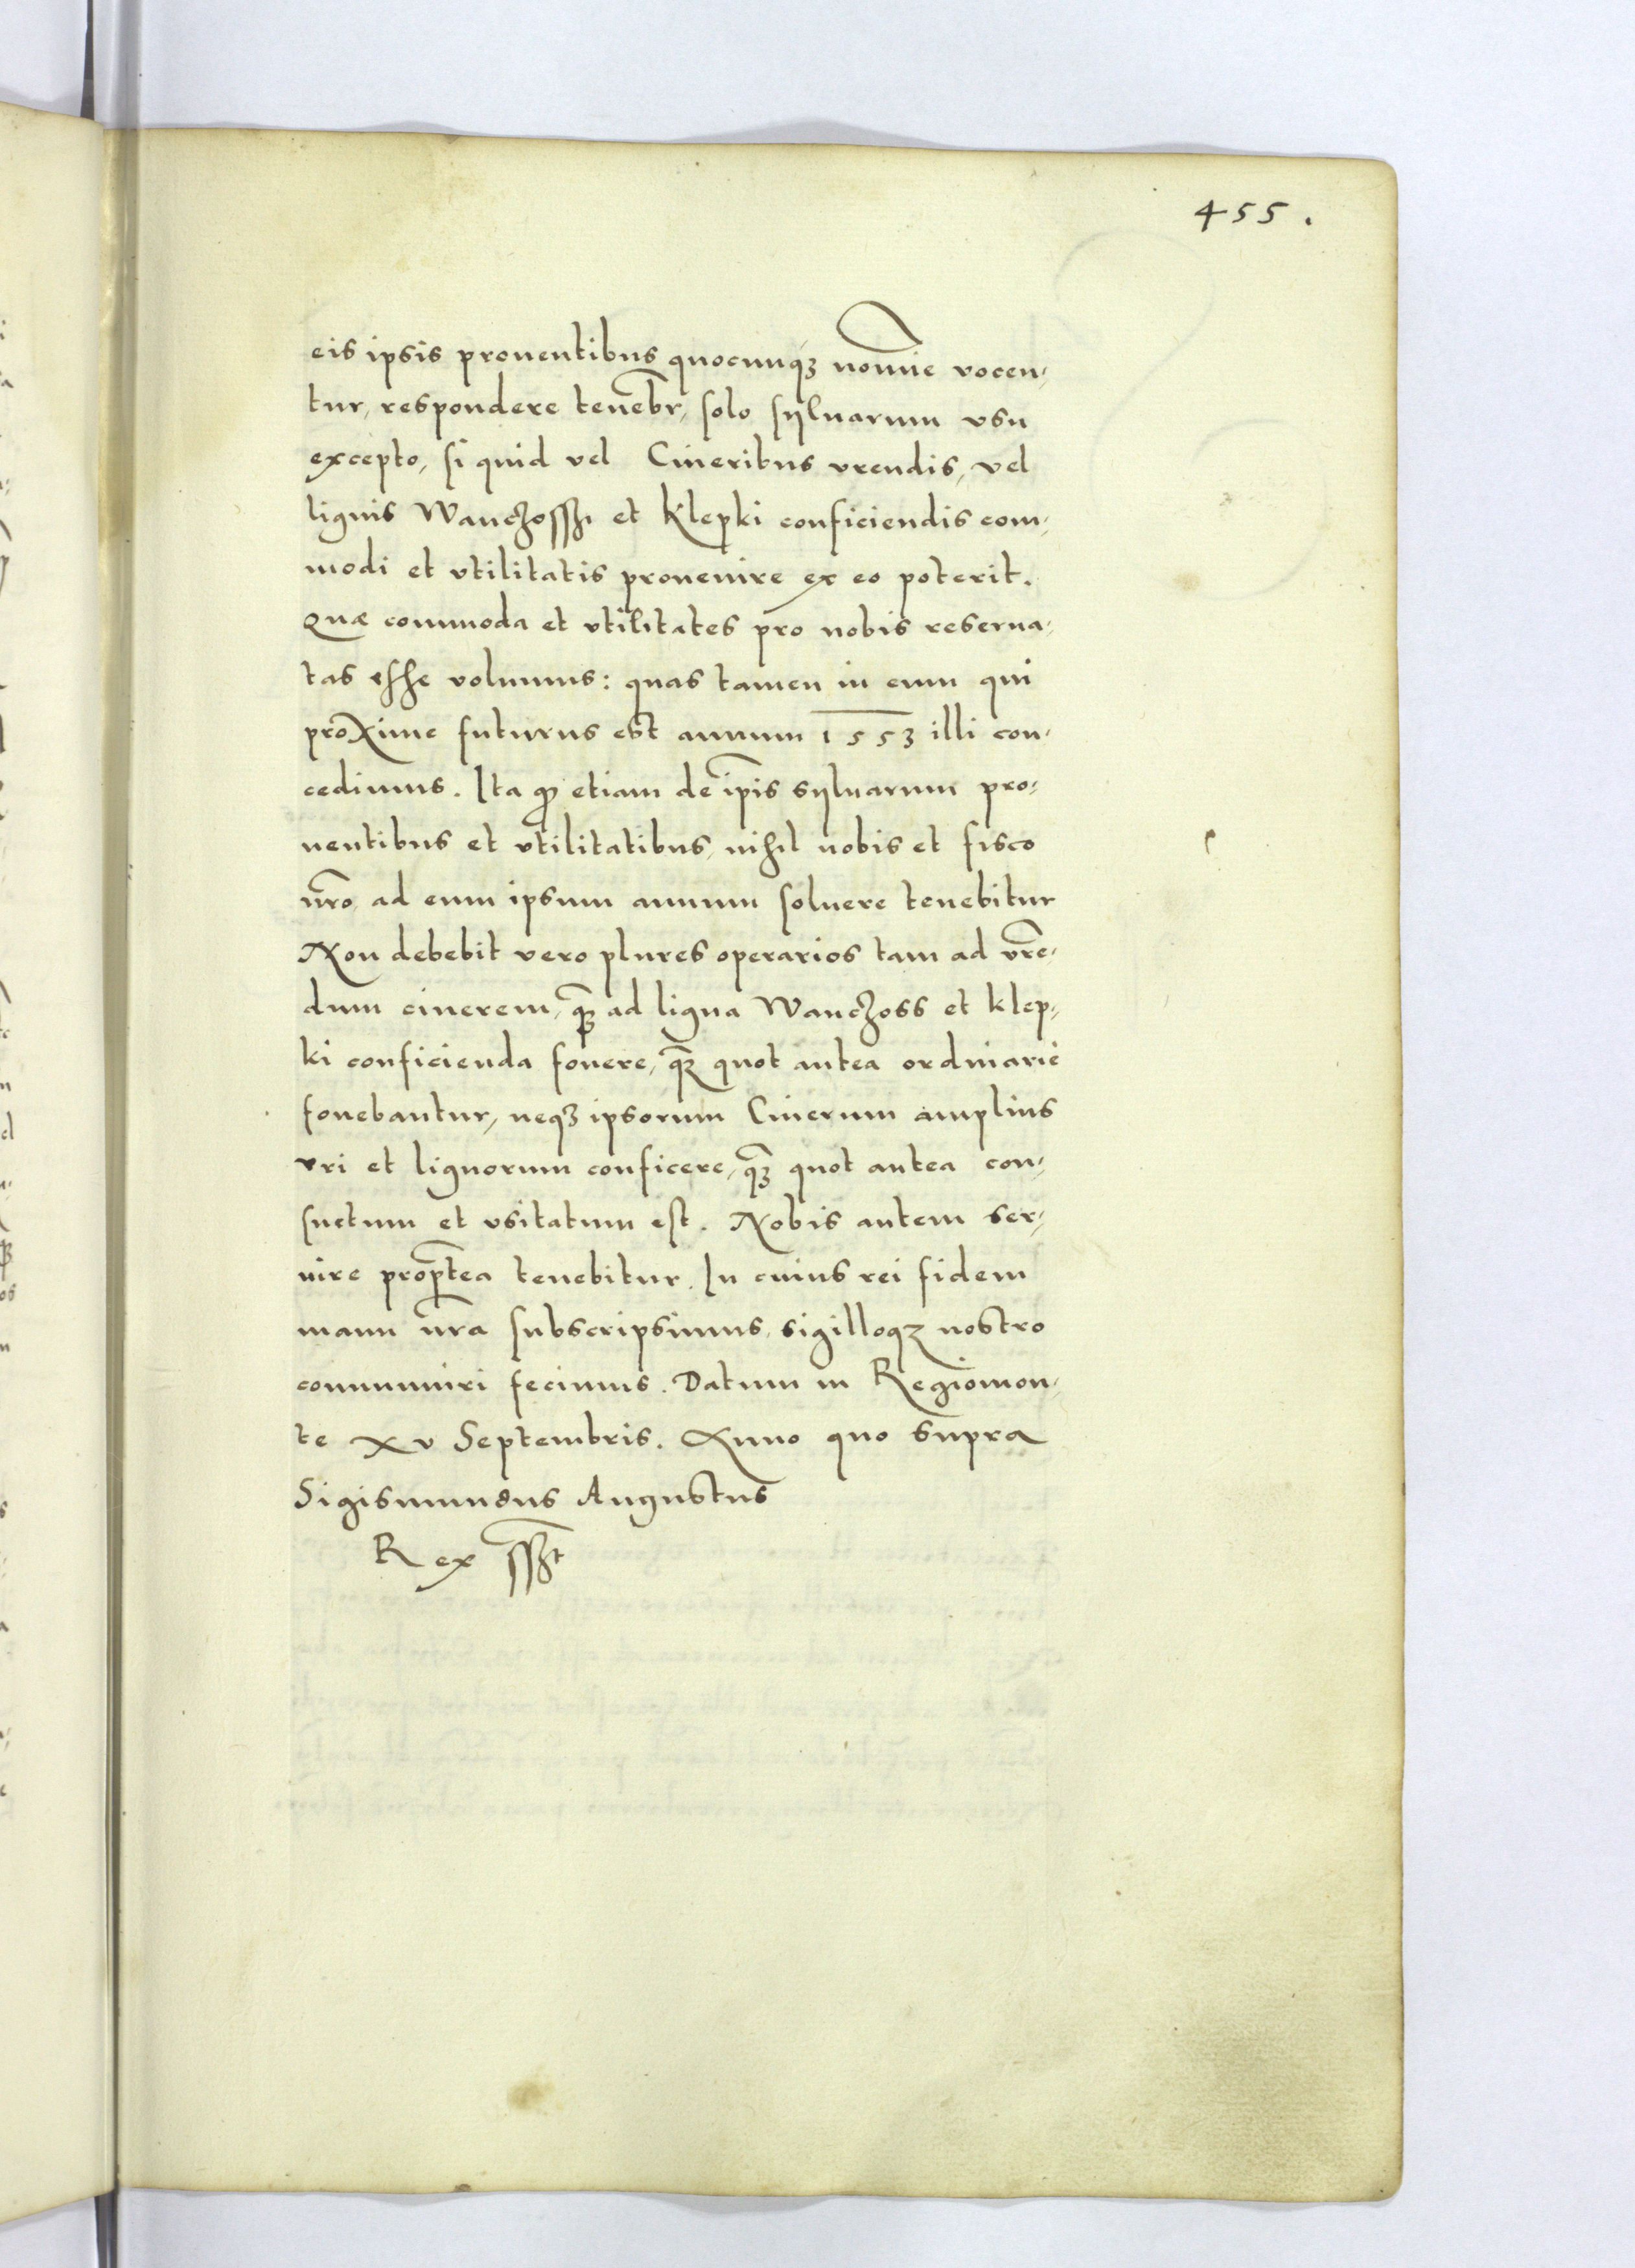 455.
eis ipsis prouentibus quocunqȝ nomīe vocen,
tur, respondere tenebr̄, solo syluarum vsu
excepto, si quid vel Cineribus vrendis, vel
lignis Wanczossȝ et Klepki conficiendis com,
modi et vtilitatis prouenire ex eo poterit.
Quæ commoda et vtilitates pro nobis reserua,
tas esse volumus: quas tamen in eum qui
proxime futurus est annum 1553 illi con,
cedimus. Ita qȝ etiam de ip̄is syluarum pro,
uentibus et vtilitatibus, nihil nobis et fisco
nr̄o ad eum ipsum annum soluere tenebitur
Non debebit vero plures operarios tam ad vrē,
dum cinerem, qȝ̄ ad ligna Wanczoss et klep,
ki conficienda fouere, qȝ̄ quot antea ordinarie
fouebantur, neqȝ ipsorum Cinerum amplius
vri et lignorum conficere, qȝ̄ quot antea con,
suetum et vsitatum est. Nobis autem ser,
uire prop̄tea tenebitur. In cuius rei fidem
manu nr̄a subscripsimus, sigilloqȝ nostro
communiri fecimus. Datum in Regiomon,
te xv Septembris. Anno quo supra
Sigismundus Augustus
Rex sszt